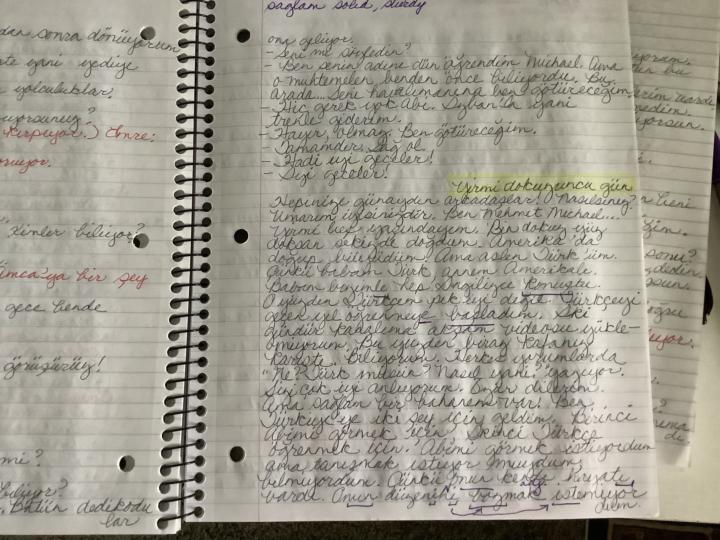 sağlam solid, sturdy
dan sonra dönüyorum
te yani yediye
yolculuklar.
uyorsunuz?
Kırpıyor.) Emre:
oruyor.
kimler biliyor?
ımca'ya bir şey
gece bende
görüşürüz!
mi?
biliyor?
Bütün dedikodu
lar
ona geliyor.
- Seni mi
- Ben senin adını dün öğrendim Michael. Ama
o muhtemelen benden önce biliyordu. Bu
arada... Seni havalimanına ben götüreceğim.
- Hiç gerek yok Abi. yani
trenle giderim.
- Hayır, olmaz. Ben götüreceğim.
- Tamamdır. Sağ ol.
- Hadi iyi geceler!
- İyi geceler!
Yirmi dokuzuncu gün
Hepinize günaydın arkadaşlar! Nasılsınız?
Umarım iyisinizdir. Ben Mehmet Michael...
Yirmi beş yaşındayım. Bin dokuz yüz
doksan sekizde doğdum. Amerika'da
doğup büyüdüm. Ama aslen Türk'üm.
Çünkü babam Türk, annem Amerikalı.
Babam benimle hep İngilizce konuştu.
O yüzden Türkçem pek iyi değil. Türkçeyi
geçen yıl öğrenmeye başladım. İki
gündür kanalıma akşam videosu yükle-
miyorum. Bu yüzden biraz kafanız
karıştı. Biliyorum. Herkes yorumlarda
"Ne? Türk müsün? Nasıl yani?" yazıyor.
Sizi çok iyi anlıyorum. Özür dilerim.
Ama sağlam bir bahanem var! Ben
Türkiye'ye iki şey için geldim. Birinci
Abimi görmek için. İkinci Türkçe
öğrenmek için. Abimi görmek istiyordum
ama tanışmak istiyor muydum,
bilmiyordum. Çünkü onun kendi hayatı
vardı. Onun düzenini bozmak istemiyor
dum.